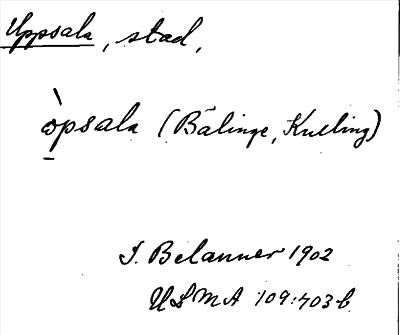 Uppsala, stad,
òpsala (Bälinge, Kulling)
I. Belanner 1902
ULMA 109:703 b.